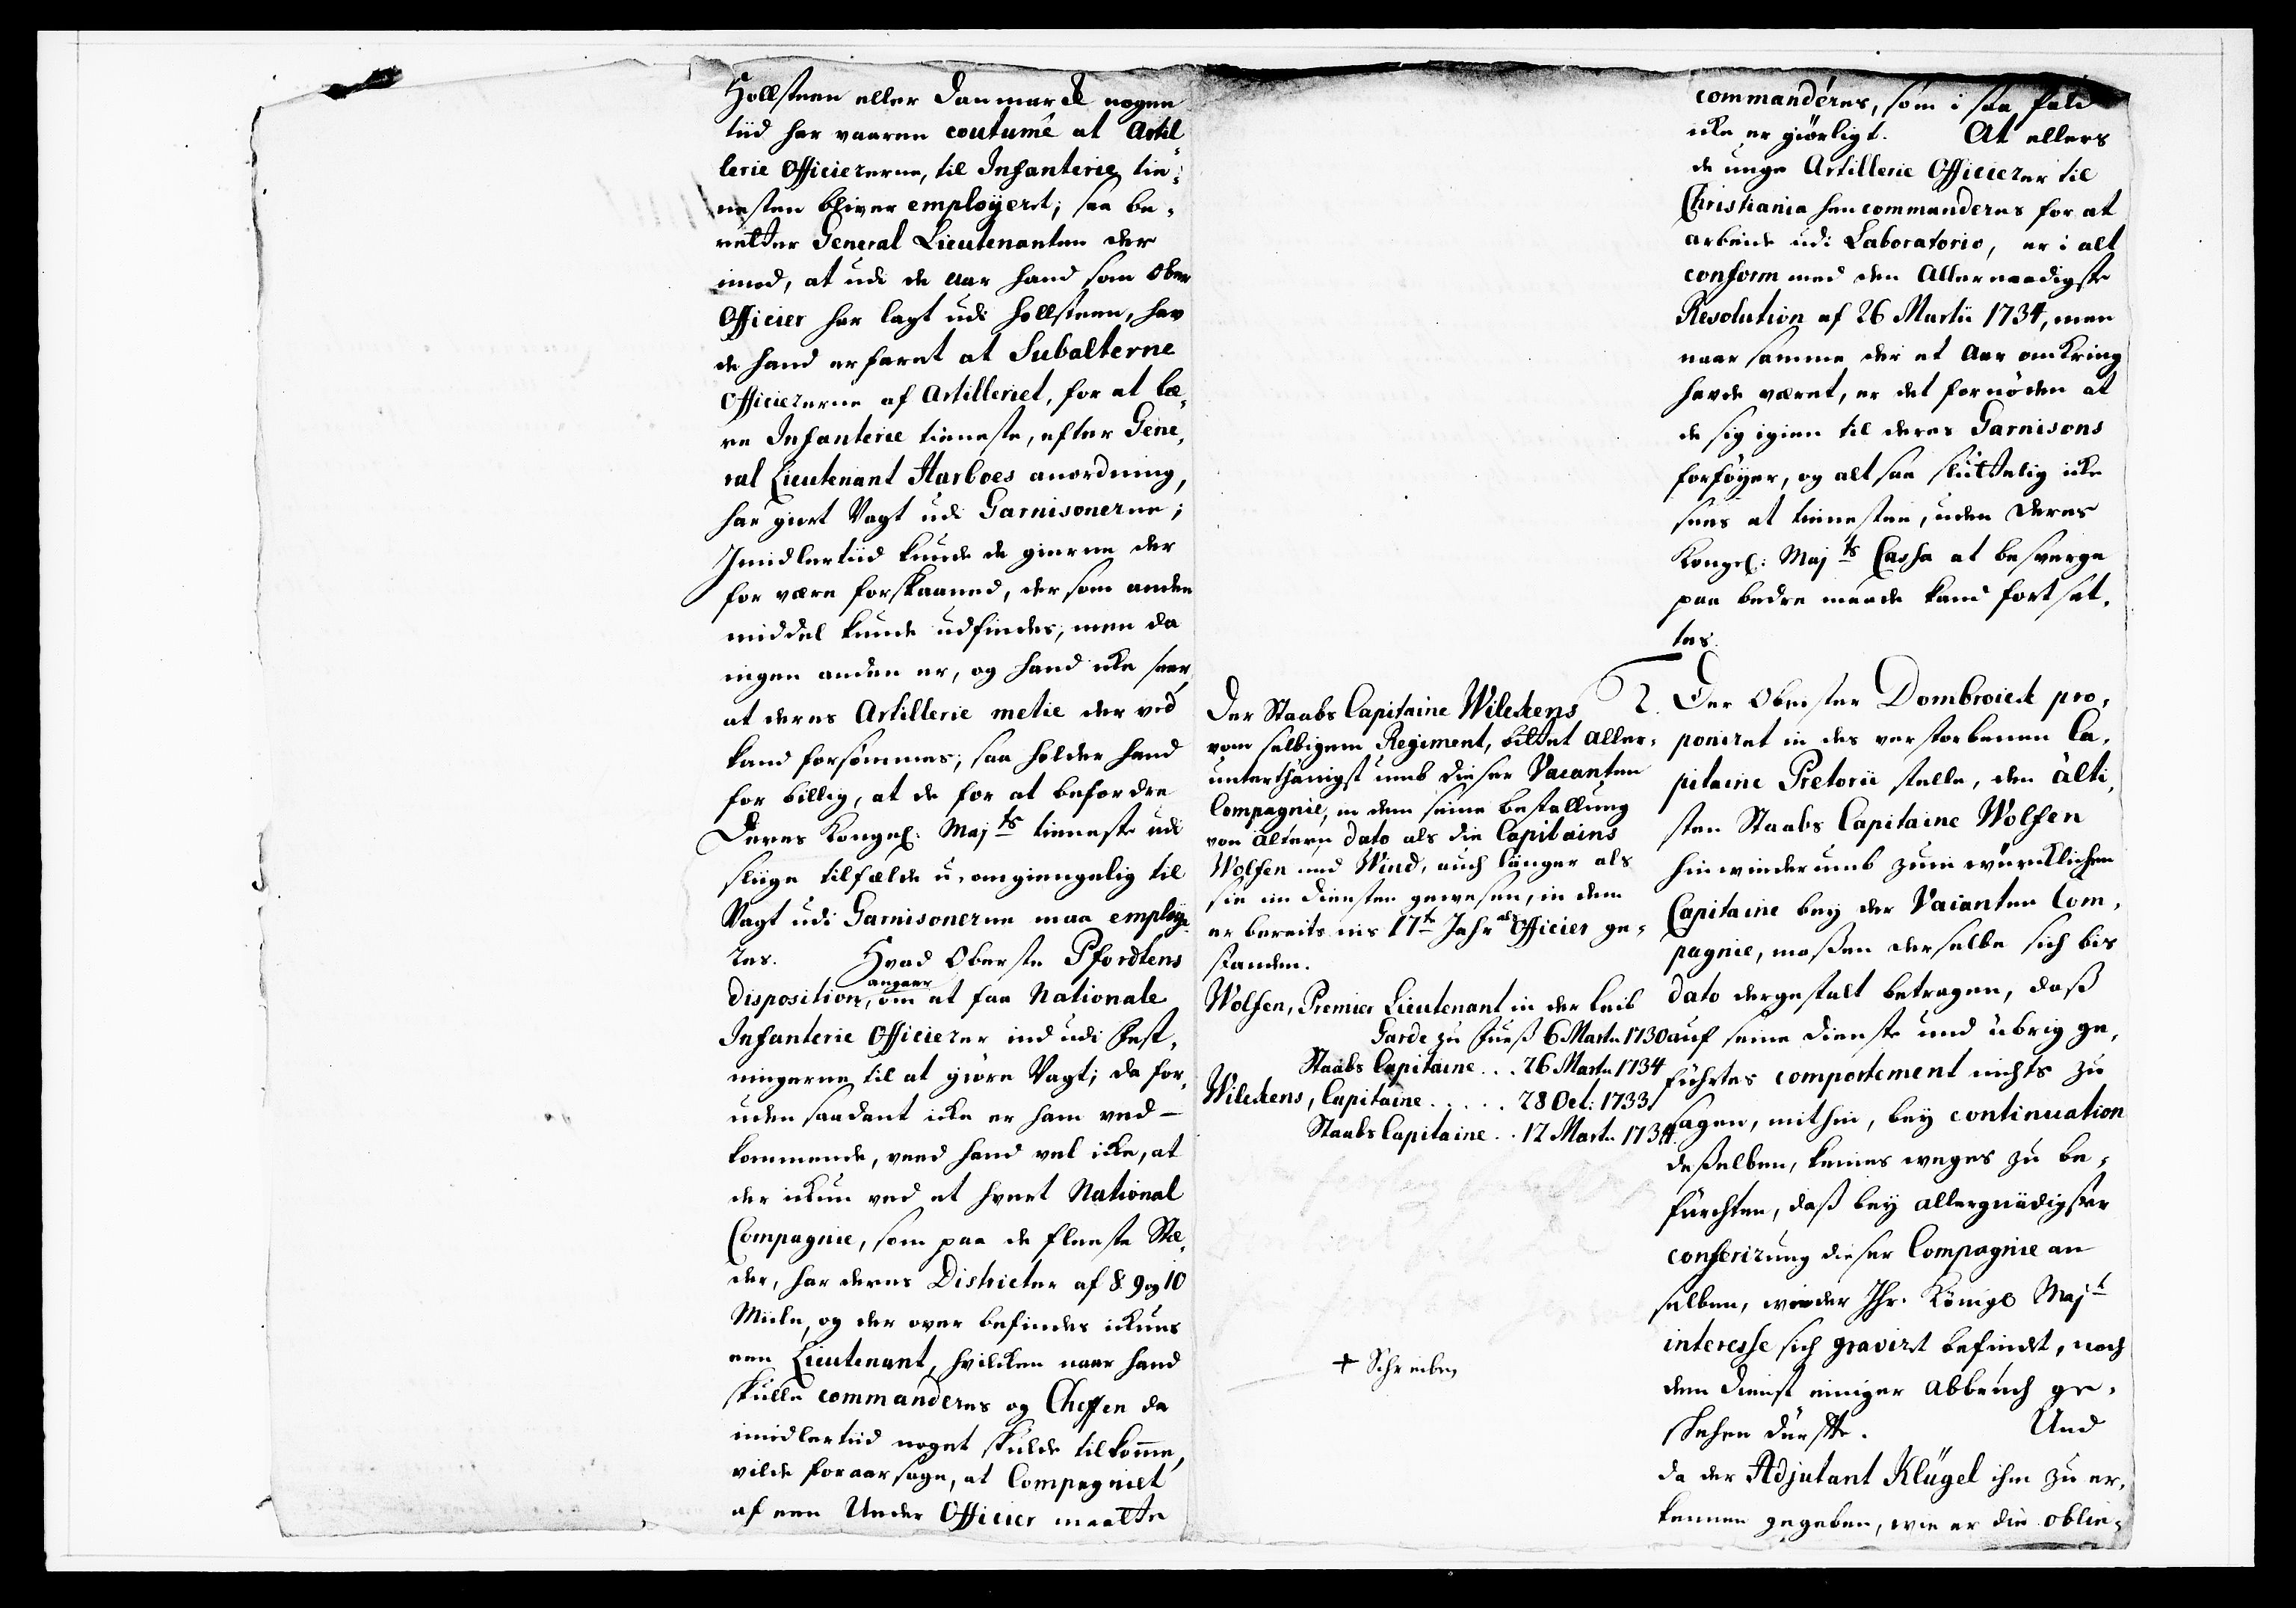 Hollsteen eller Danmarck nogen
tiid har vaaren coutumé at Artil¬
lerie Officiererne, til Infanterie tie¬
nesten bliver employeret; saa be¬
retter General Lieutenanten der
imod, at udi de aar hand som Ober
Officier har lagt udi Hollsteen, hav
de hand erfaret at Subalterne
Officiererne af Artilleriet, for at læ¬
re Infanterie tieneste, efter Gene¬
ral Lieutenant Harboes anordning,
har giort Vagt udi Garnisonerne;
Imidlertiid kunde de gierne der
for være forskaaned, der som anden
middel kunde udfindes, men da
ingen anden er, og hand icke seer,
at deres Artillerie metie der ved
kand forsømmes; saa holder hand
for billig, at de for at befordre
Deres Kongel: Majts tieneste udi
sliige tilfælde u-omgiengelig til
Vagt udi Garnisonerne maa employe
res. Hvad Oberste Pfordtens
disposition, angaar om at faa Nationale
Infanterie Officierer ind udi Fest¬
ningerne til at giøre Vagt; da for¬
uden saadant icke er ham ved-
kommende, veed hand vel icke, at
der ickun ved et hvert National
Compagnie, som paa de fleeste Stæ¬
der, har deres Districter af 8. 9 og 10
Miile, og der over befindes ickuns
een Lieutenant, hvilcken naar hand
skulle commanderes og Cheffen da
imidlertiid noget skulde tilkomme,
vilde foraarsage, at Compagniet
af een Under Officier maatte
Der Staabs Capitaine Wilckens
vom selbigem Regiment, bittet aller¬
unterthänigst umb dieser Vacanten
Compagnie, in dem seine bestallung
von ältern dato als die Capitains
Wolfen und Wind, auch länger als
sie im Diensten gewesen, in dem
er bereits ins 17te Jahr als Officier ge¬
standen.
Wolfen, Premier Lieutenant in der Leib
Garde zu Fueß 6 Martii 1730
Staabs Capitaine . . . 26 Martii 1734
Wilckens, Capitaine . . . . . 28 Oct: 1733
Staabs Capitaine . . 12 Martii 1734.
+ Schreiben
commanderes, som i saa fald
icke er giørligt. At ellers
de unge Artillerie Officierer til
Christiania hen commanderes for at
arbeide udi Laboratorio, er i alt
conform med den Allernaadigste
Resolution af 26 Martii 1734, men
naar samme der et Aar omkring
havde været, er det fornøden at
de sig igien til deres Garnisons
forføyer, og alt saa sluttelig icke
sees at tienesten, uden Deres
Kongel: Majts Cassa at besverge
paa bedre maade kand fort sæt¬
tes.
2. Der Obrister Dombroick pro¬
poniret in des verstorbenen Ca¬
pitaine Pretorii stelle, den älti¬
sten Staabs Capitaine Wolfen
hinwiederumb zum würcklichen
Capitaine bey der Vacanten Com¬
pagnie, maßen derselbe sich bis
dato dergestalt betragen, daß
auf seine Dienste und übrig ge¬
führtes comportement nichts zu
sagen, mithin, bey continuation
deßelben, keines weges zu be¬
fürchten, daß bey allergnädigster
conferirung dieser Compagnie an
selben, wieder Ihr. Königl Majt
interesse sich gravirt befindet, noch
dem Dienst einiger Abbruch ge¬
schehen dürffte. Und
da der Adjutant Klügel ihm zu er¬
kennen gegeben, wie er die oblie¬